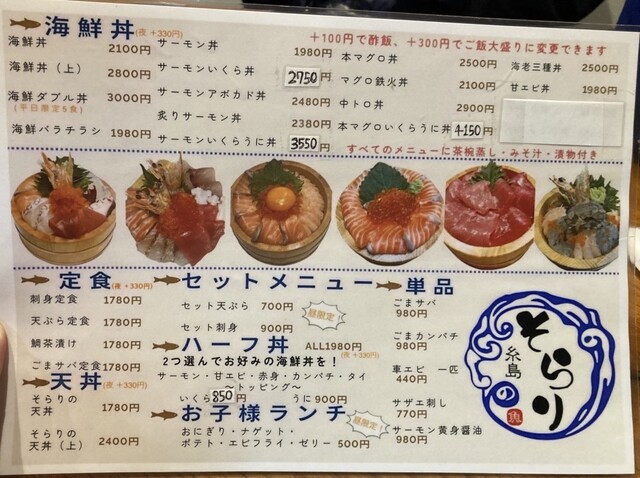 海鮮丼(夜 +330円)
+100円で酢飯、+300円でご飯大盛りに変更できます
海鮮丼 2100円
海鮮丼(上) 2800円
海鮮ダブル丼 3000円
(平日限定5食)
海鮮バラチラシ 1980円
サーモン丼 1980円
サーモンいくら丼 2750円
サーモンアボカド丼 2480円
炙りサーモン丼 2380円
サーモンいくらうに丼 3550円
本マグロ丼 2500円
マグロ鉄火丼 2100円
中トロ丼 2900円
本マグロいくらうに丼 4150円
海老三種丼 2500円
甘エビ丼 1980円
すべてのメニューに茶椀蒸し・みそ汁・漬物付き
定食(夜 +330円)
刺身定食 1780円
天ぷら定食 1780円
鯛茶漬け 1780円
ごまサバ定食 1780円
天丼(夜 +330円)
そらりの
天丼 1780円
そらりの
天丼(上) 2400円
セットメニュー
セット天ぷら 700円
セット刺身 900円
昼限定!
ハーフ丼 ALL1980円
(夜 +330円)
2つ選んでお好みの海鮮丼を!
サーモン・甘エビ・赤身・カンパチ・タイ
〜トッピング〜
いくら 850円 うに900円
お子様ランチ
昼限定!
おにぎり・ナゲット・
ポテト・エビフライ・ゼリー 500円
単品
ごまサバ
980円
ごまカンパチ
980円
車エビ 一匹
440円
サザエ刺し
770円
サーモン黄身醤油
980円
糸島
そらりの
魚